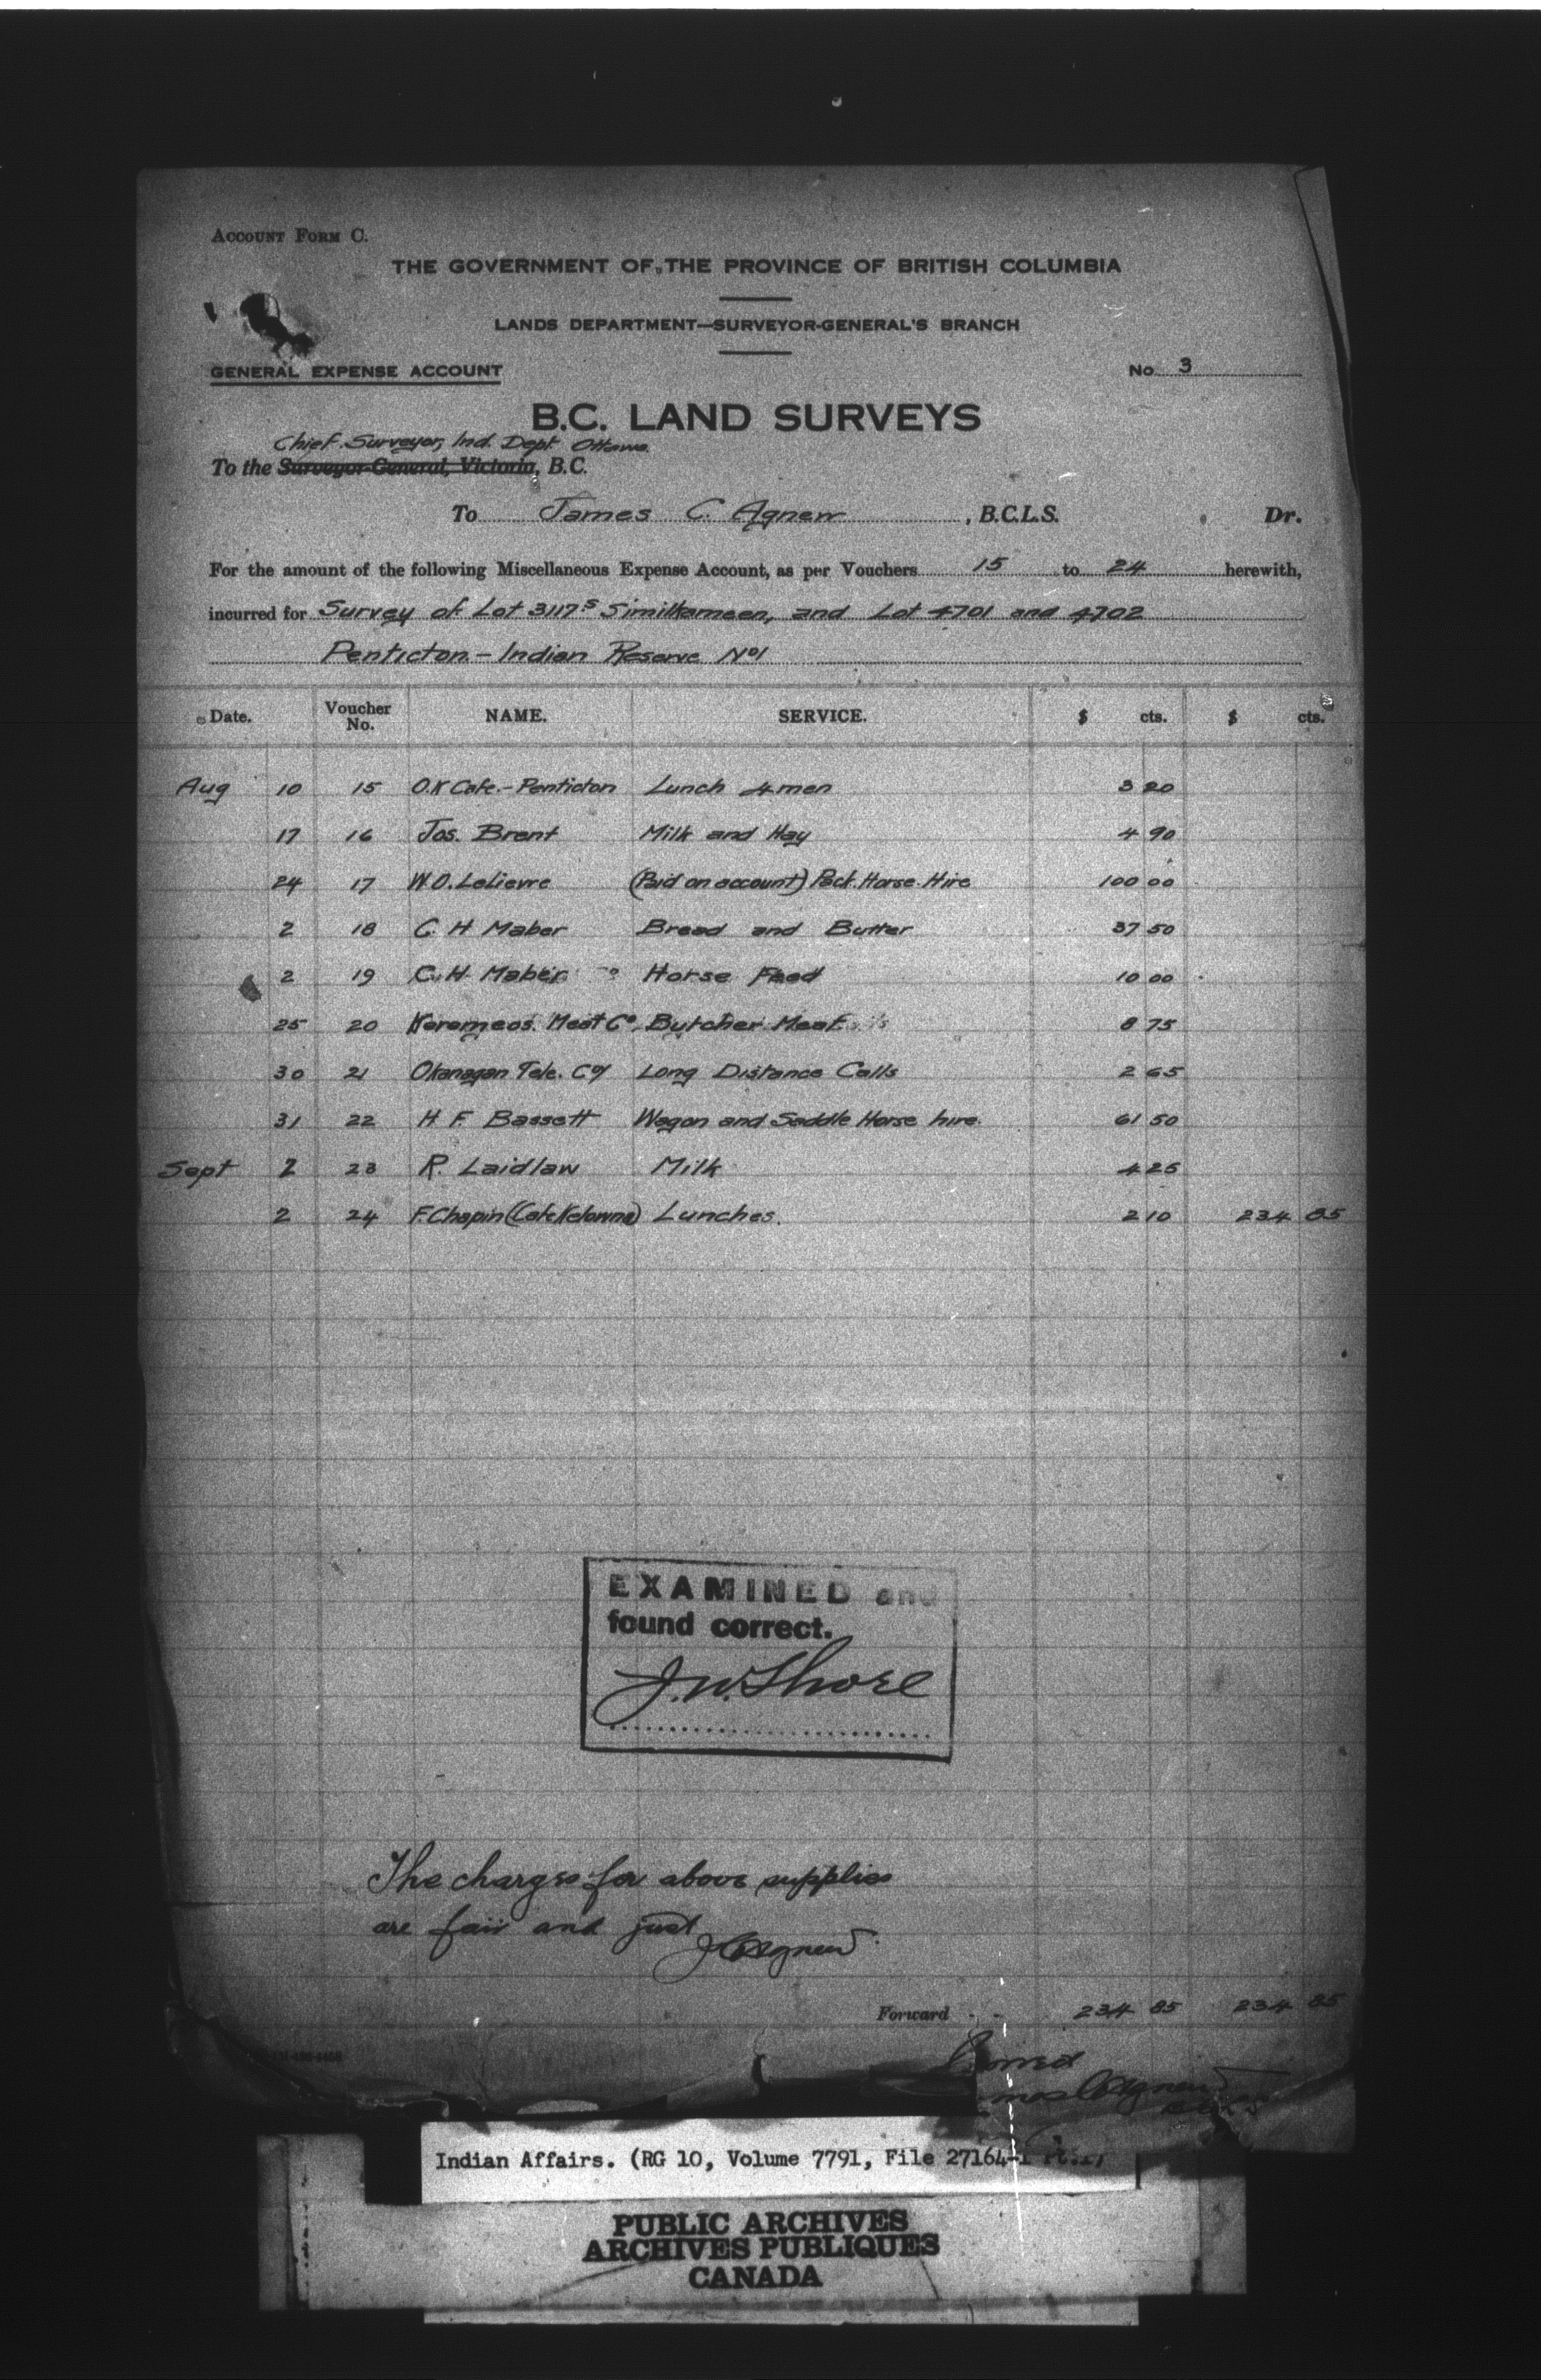 ACCOUNT FORM C.
THE GOVERNMENT OF THE PROVINCE OF BRITISH COLUMBIA
LANDS DEPARTMENT—SURVEYOR-GENERAL'S BRANCH
GENERAL EXPENSE ACCOUNT No. 3
B.C. LAND SURVEYS
Chief Surveyor, Ind. Dept Ottawa.
To the Surveyor-General, Victoria, B.C.
To James C. Agnew, B.C.L.S. Dr.
For the amount of the following Miscellaneous Expense Account, as per Vouchers 15 to 24 herewith,
incurred for Survey of Lot 3117 s Similkameen, and Lot 4701 and 4702
Penticton - Indian Reserve No 1
Date. Voucher No. NAME. SERVICE. $ cts. $ cts.
Aug 10 15 O.K Cafe. - Penticton Lunch 4 men 3 20
17 16 Jos. Brent Milk and Hay 4 90
24 17 W.O. Lelievre (Paid on account) Pack Horse Hire 100 00
2 18 C. H Maber Bread and Butter 37 50
2 19 C. H. Maber Horse Feed 10 00
25 20 Keremeos. Meat Co. Butcher Meat 8 75
30 21 Okanagan Tele. Coy Long Distance Calls 2 65
31 22 H F. Bassett Wagon and Saddle Horse hire. 61 50
Sept 2 23 R. Laidlaw Milk 4 25
2 24 F. Chapin (Cafe Kelowna) Lunches. 2 10 234 85
EXAMINED and
found correct.
J.W. Shore
The charges for above supplies
are fair and just
J C Agnew
Forward 234 85 234 85
Agnew
Indian Affairs. (RG 10, Volume 7791, File 27164-1 Pt.1)
PUBLIC ARCHIVES
ARCHIVES PUBLIQUES
CANADA